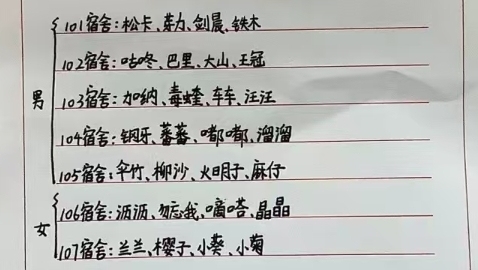 101宿舍:松卡、芽力、剑晨、铁木
102宿舍:咕咚、巴里、大山、王冠
男 103宿舍:加纳、毒蝰、车车、汪汪
104宿舍:钢牙、蕃蕃、嘟嘟、溜溜
105宿舍:伞竹、柳沙、火明子、麻仔
女 106宿舍:沥沥、勿忘我、嘀嗒、晶晶
107宿舍:兰兰、樱子、小葵、小菊